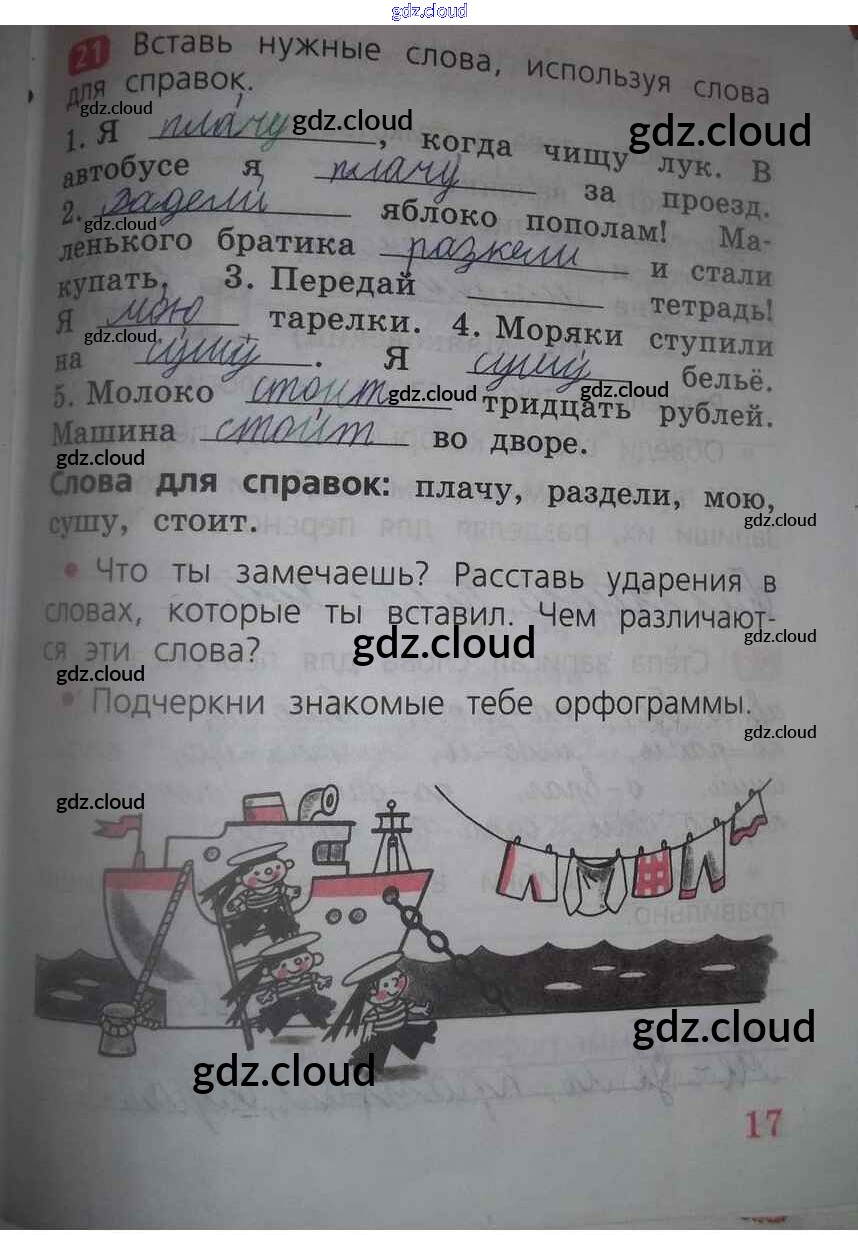 gdz.cloud
21 Вставь нужные слова, используя слова
для справок.
gdz.cloud gdz.cloud gdz.cloud
1. Я плачу, когда чищу лук. В
автобусе я плачу за проезд.
2. яблоко пополам! Ма-
gdz.cloud
ленького братика и стали
купать. 3. Передай тетрадь!
Я мою тарелки. 4. Моряки ступили
gdz.cloud
на сушу. Я сушу бельё.
gdz.cloud gdz.cloud
5. Молоко стоит тридцать рублей.
Машина стоит во дворе.
gdz.cloud
Слова для справок: плачу, раздели, мою,
сушу, стоит.
gdz.cloud
• Что ты замечаешь? Расставь ударения в
словах, которые ты вставил. Чем различают-
ся эти слова?
gdz.cloud gdz.cloud
gdz.cloud
• Подчеркни знакомые тебе орфограммы.
gdz.cloud
gdz.cloud
gdz.cloud
gdz.cloud
17